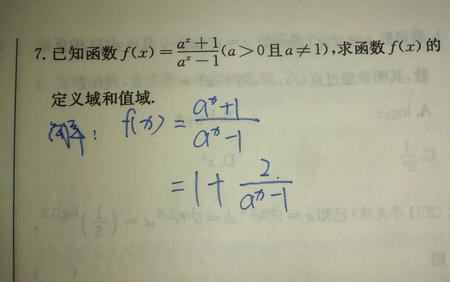 7. 已知函数 f(x)=\frac{a^x+1}{a^x-1}(a>0且a≠1),求函数 f(x) 的
定义域和值域.
解: f(x) = \frac{a^x+1}{a^x-1}
= 1 + \frac{2}{a^x-1}